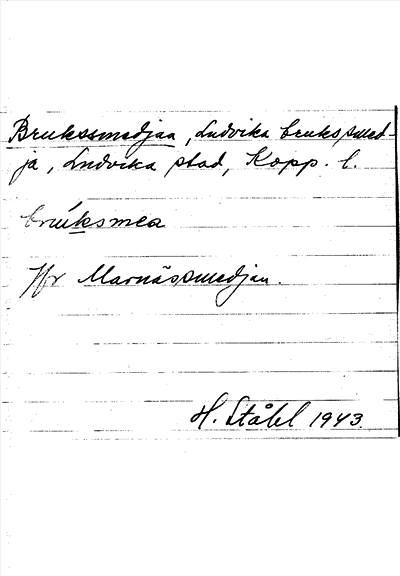 Bruksmedjan, Ludvika brukssmed-
ja, Ludvika stad, Kopp. l.
bruksmea
Jfr Marnässmedjan.
H. Ståhl 1943.